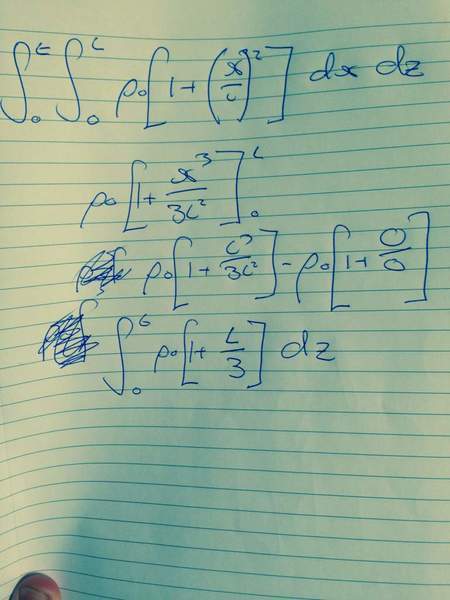 ∫₀ᵗ ∫₀ᴸ ρ₀[1+(x/L)²] dx dz
ρ₀[1+x³/3L²]₀ᴸ
ρ₀[1+L³/3L²]-ρ₀[1+0/0]
∫₀ᵗ ρ₀[1+L/3] dz